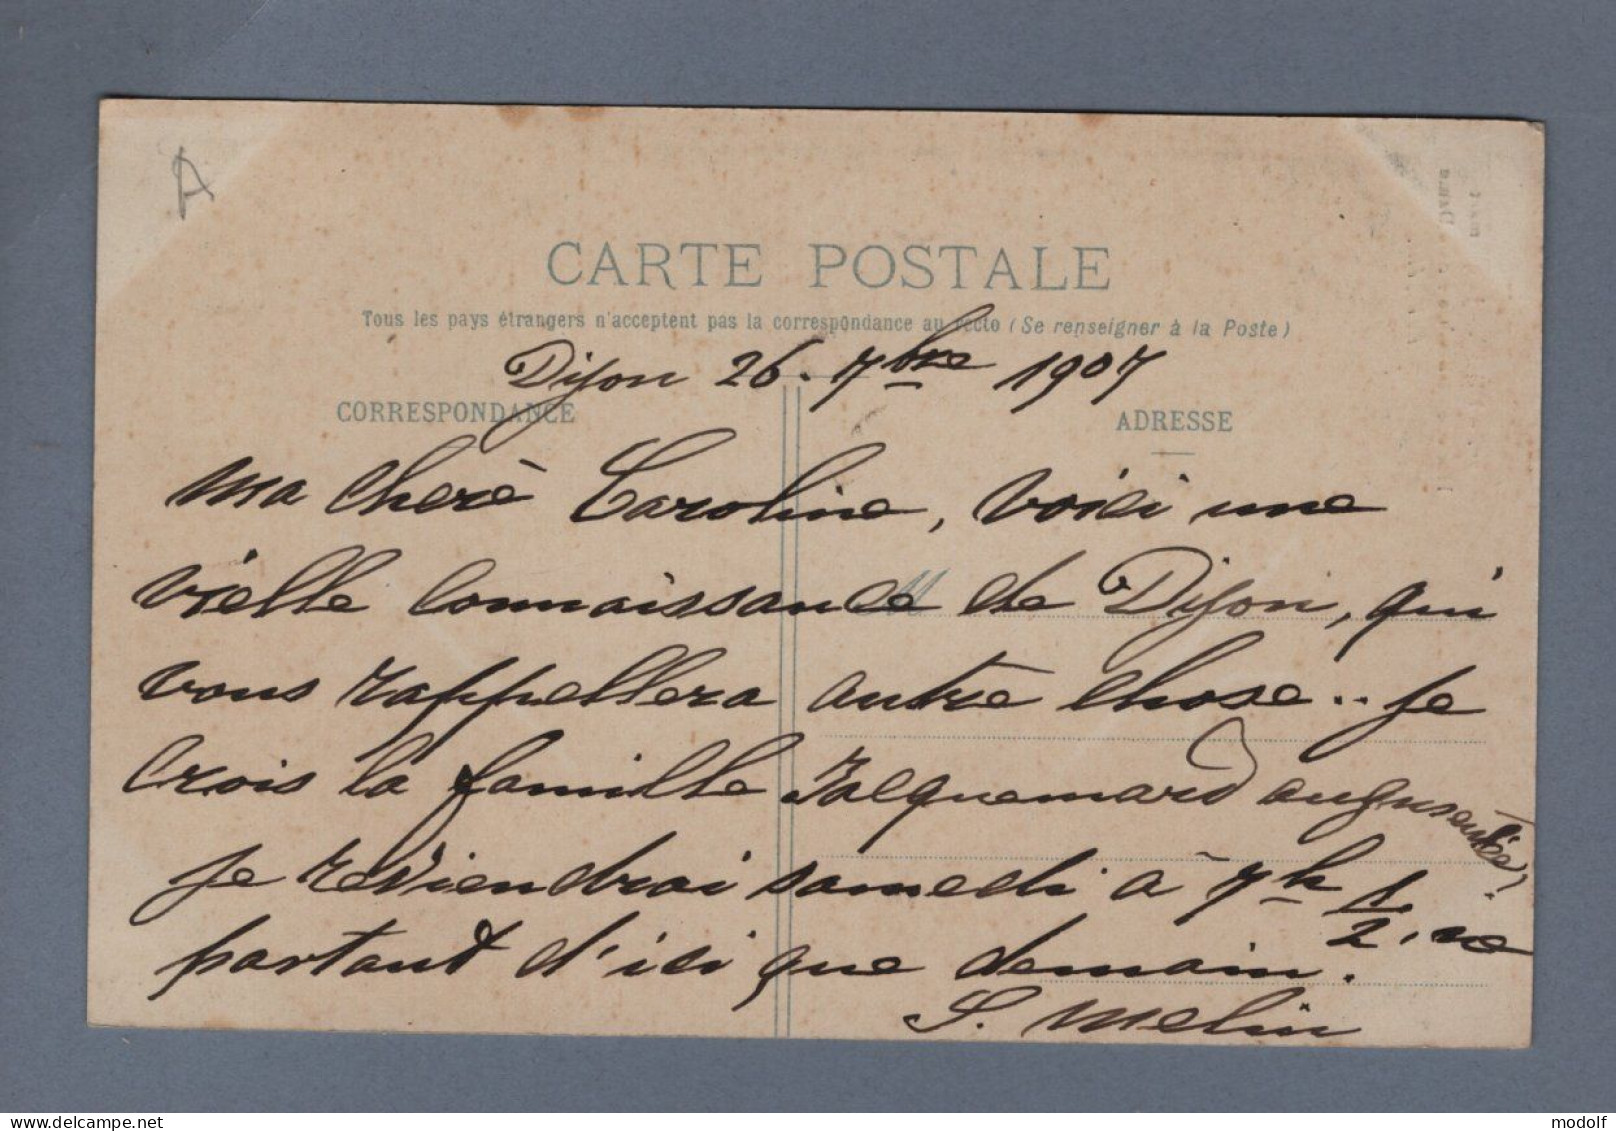 A
CARTE POSTALE
Tous les pays étrangers n'acceptent pas la correspondance au recto (Se renseigner à la Poste)
Dijon 26. 7bre 1907
CORRESPONDANCE
ADRESSE
ma cherè Caroline, voici une
vielle connaissance de Dijon, qui
vous rappellera autre chose.. je
crois la famille Jacquemard augmentée?
je reviendrai samedi à 7h 1/2. ne
partant d'ici que demain.
S. Melin
modolf